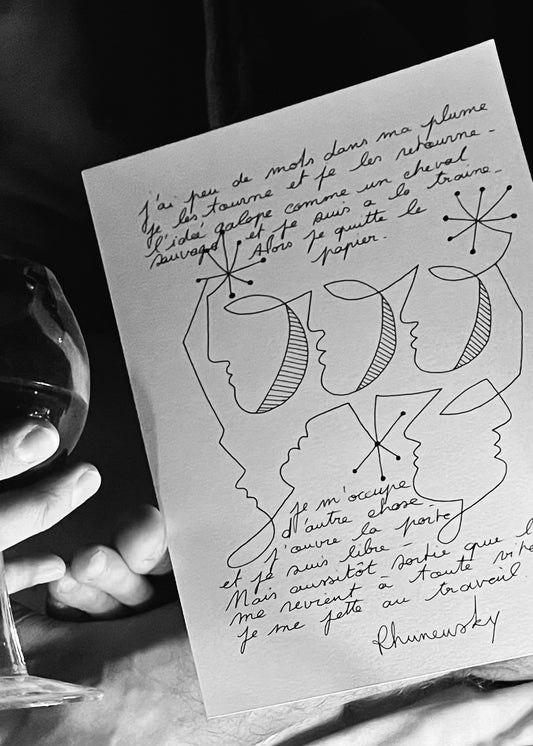 j'ai peu de mots dans ma plume
je les tourne et je les retourne -
l'idée galope comme un cheval
sauvage et je suis a la traine -
Alors je quitte le
papier.
je m'occupe
d'autre chose
j'ouvre la porte
et je suis libre -
Mais aussitôt sortie que l
me revient à toute vite
je me jette au travail.